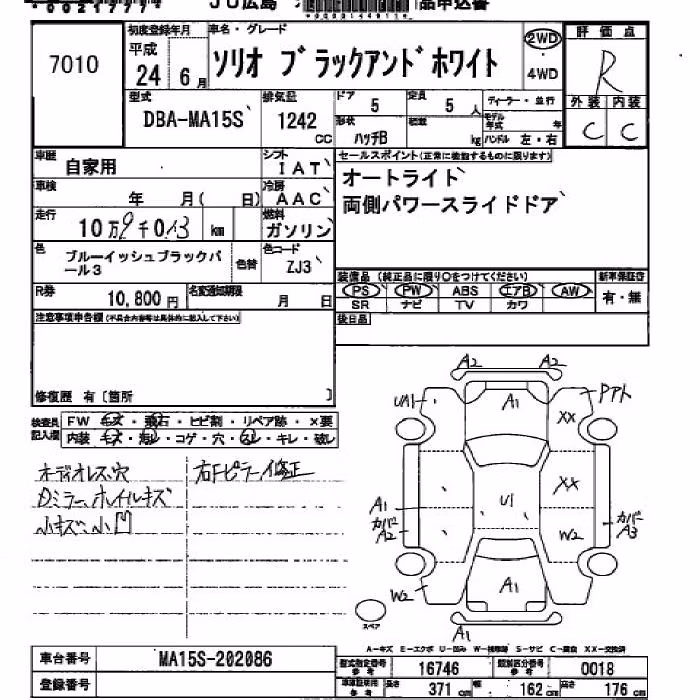 00217771 JU広島 品申込書
7010
初度登録年月 車名・グレード 評価点
平成 24 6月 ソリオ ブラックアンドホワイト 2WD 4WD R
型式 排気量 ドア 定員 ディーラー・並行 外装 内装
DBA-MA15S 1242 CC 5 5 人 モデル年式 年 C C
形状 ハッチB 積載 kg ハンドル 左・右
車歴 自家用 シフト IAT セールスポイント(正常に機能するものに限ります)
車検 年 月( 日) 冷房 AAC オートライト
走行 10万9千013 km 燃料 ガソリン 両側パワースライドドア
色 ブルーイッシュブラックパール3 色替 色コード ZJ3
装備品(純正品に限り○をつけてください) 新車保証書
R券 10,800円 名変通知期限 月 日 PS PW ABS エアB AW 有・無
SR ナビ TV カワ
注意事項申告欄(不具合内容等は具体的に記入して下さい) 後日品
修復歴 有〔箇所 〕
検査員記入欄 FW キズ・飛石・ヒビ割・リペア跡・×要
内装 キズ・汚れ・コゲ・穴・スレ・キレ・破レ
オーディオレス穴 右Fピラー修正
Dミラー、ホイルキズ
小キズ、小凹
A2 A2
UA1 A1 Pアト
XX
XX
A1 U1
カバー A2 W2 カバー A3
W2 A1
スペア A1
A-キズ E-エクボ U-凹み W-補修跡 S-サビ C-腐食 XX-交換済
車台番号 MA15S-202086 型式指定番号 参考 16746 類別区分番号 参考 0018
登録番号 車庫証明用 参考 長さ 371cm 幅 162cm 高さ 176cm